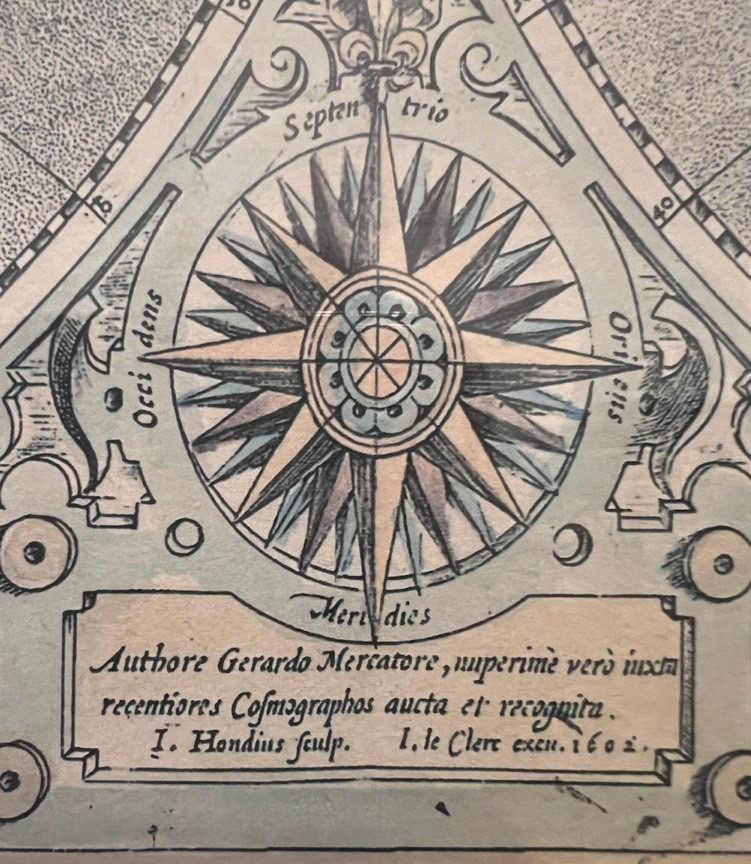 Septentrio
Occidens
Oriens
Meridies
Authore Gerardo Mercatore, nuperimè verò iuxta
recentiores Coſmographos aucta et recognita.
I. Hondius ſculp. I. le Clerc excu. 1602.
40